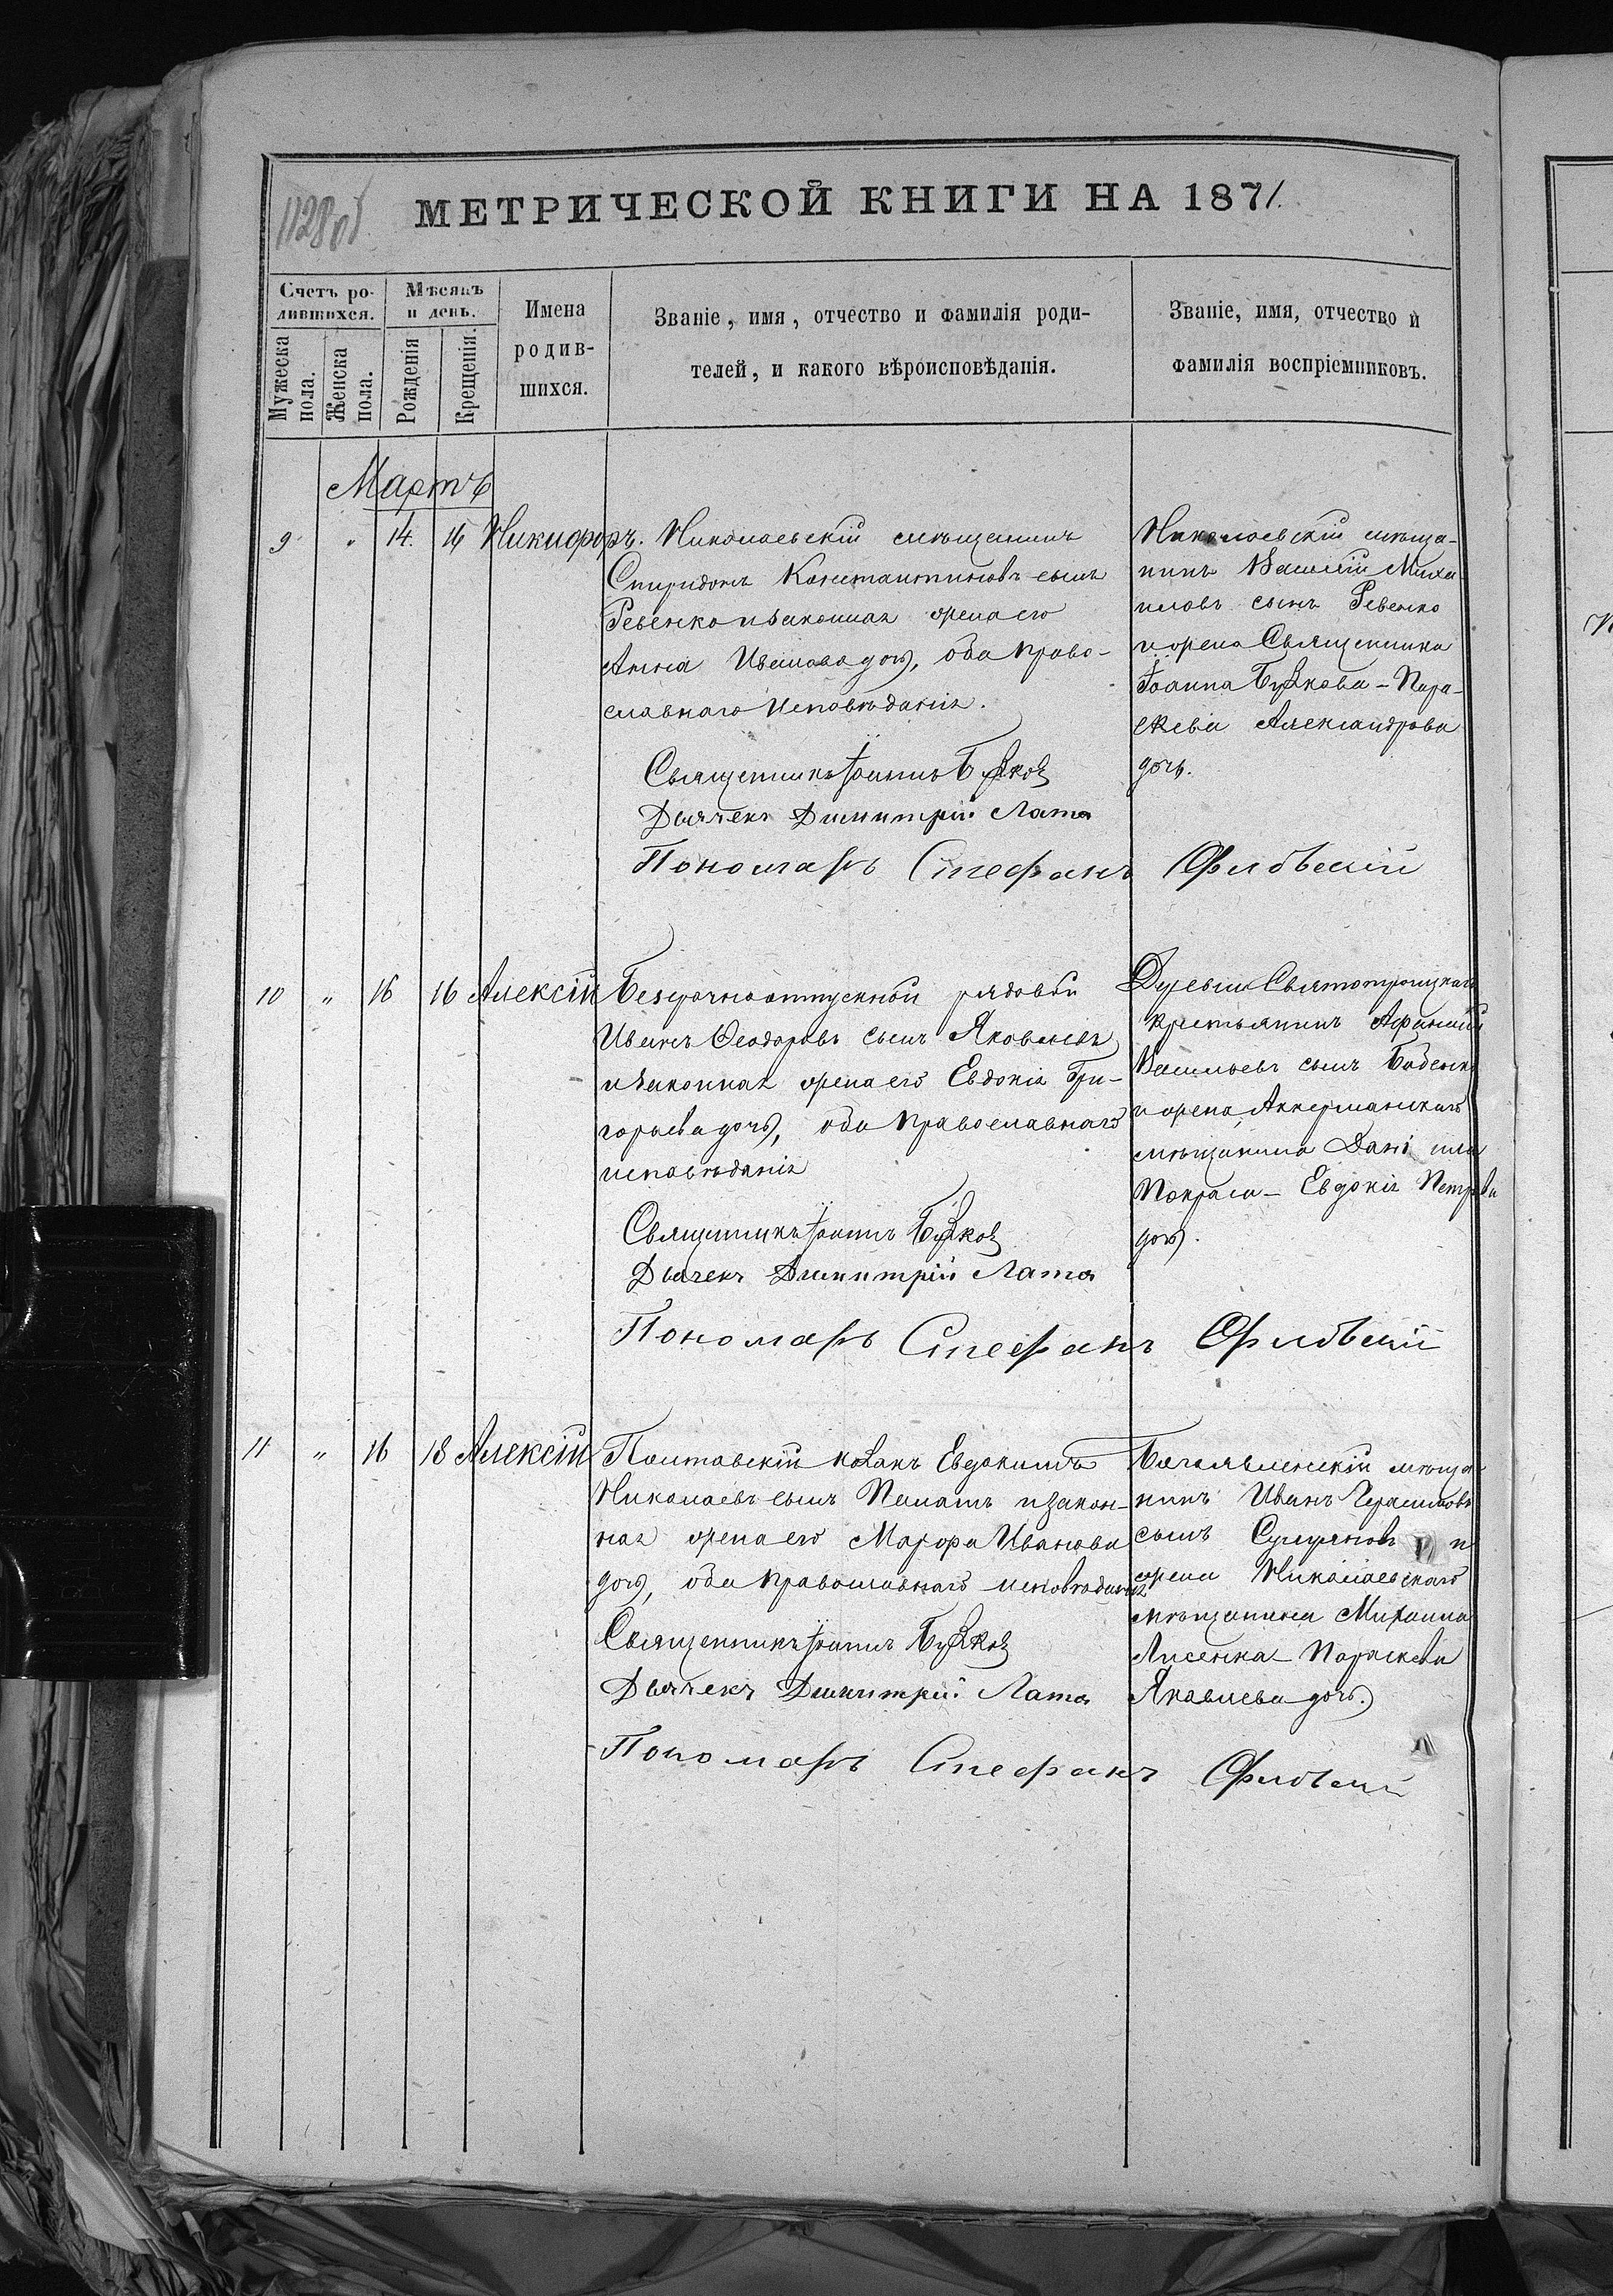 1128об
МЕТРИЧЕСКОЙ КНИГИ НА 1871.
Счетъ ро-
дившихся.
Мѣсяцъ
и день.
Мужеска
пола.
Женска
пола.
Рожденія
Крещенія.
Имена
родив-
шихся.
Званіе, имя, отчество и фамилія роди-
телей, и какого вѣроисповѣданія.
Званіе, имя, отчество и
фамилія воспріемниковъ.
Мартъ
9 " 14. 16 Никифоръ. Николаевскій мѣщанинъ
Спиридонъ Константиновъ сынъ
Ревенко и законная жена его
Анна Иванова дочь, оба право-
славнаго исповѣданія.
Николаевскій мѣща-
нинъ Василій Миха
иловъ сынъ Ревенко
и жена Священника
Іоанна Бужкова - Пара-
скевія Александрова
дочь.
Священникъ Іоаннъ Бужковъ
Дьячекъ Димитрій Лата
Пономарь Стефанъ
10 " 16 16 Алексій Безсрочноотпускной рядовой
Иванъ Ѳеодоровъ сынъ Яковлевъ
и законная жена его Евдокія Гри-
горьева дочь, оба православнаго
исповѣданія
Святотроицкаго
крестьянинъ Афанасій
Васильевъ сынъ Бабенко
и жена Аккерманскаго
мѣщанина Даніила
Покраса - Евдокія Петрова
дочь.
Священникъ Іоаннъ Бужковъ
Дьячекъ Димитрій Лата
Пономарь Стефанъ
11 " 16 18 Алексій Полтавскій козакъ Евдокимъ
Николаевъ сынъ и закон-
ная жена его Марфа Иванова
дочь, оба православнаго исповѣданія
Богоявленскій мѣща-
нинъ Иванъ Герасимовъ
сынъ и
жена Николаевскаго
мѣщанина Михаила
Лисенка - Параскева
Яковлева дочь.
Священникъ Іоаннъ Бужковъ
Дьячекъ Димитрій Лата
Пономарь Стефанъ